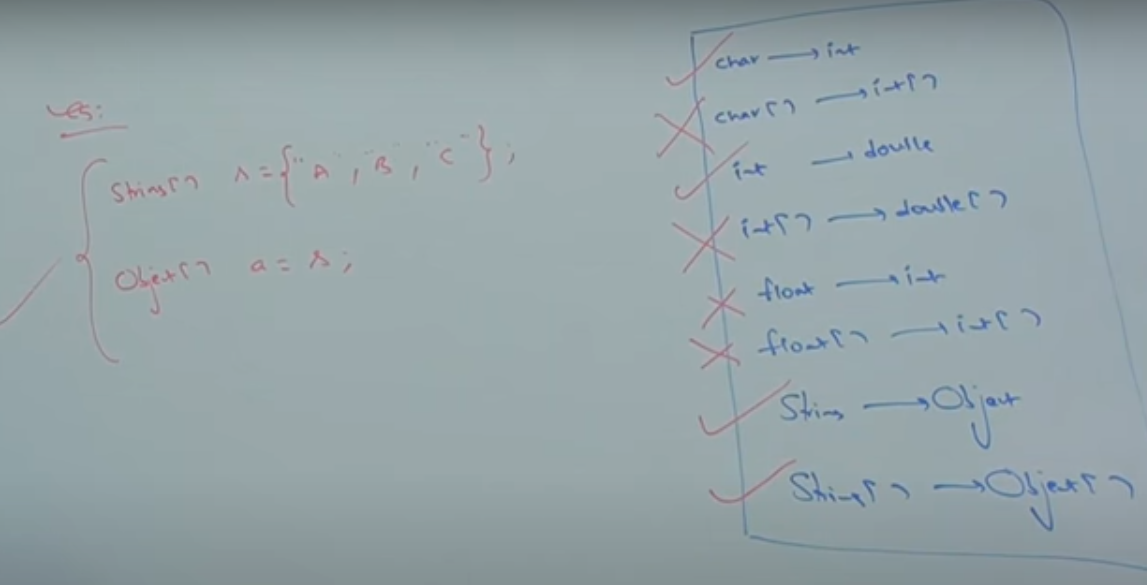 es:
String[] s = {"A", "B", "C"};
Object[] a = s;
char → int
char[] → int[]
int → double
int[] → double[]
float → int
float[] → int[]
String → Object
String[] → Object[]